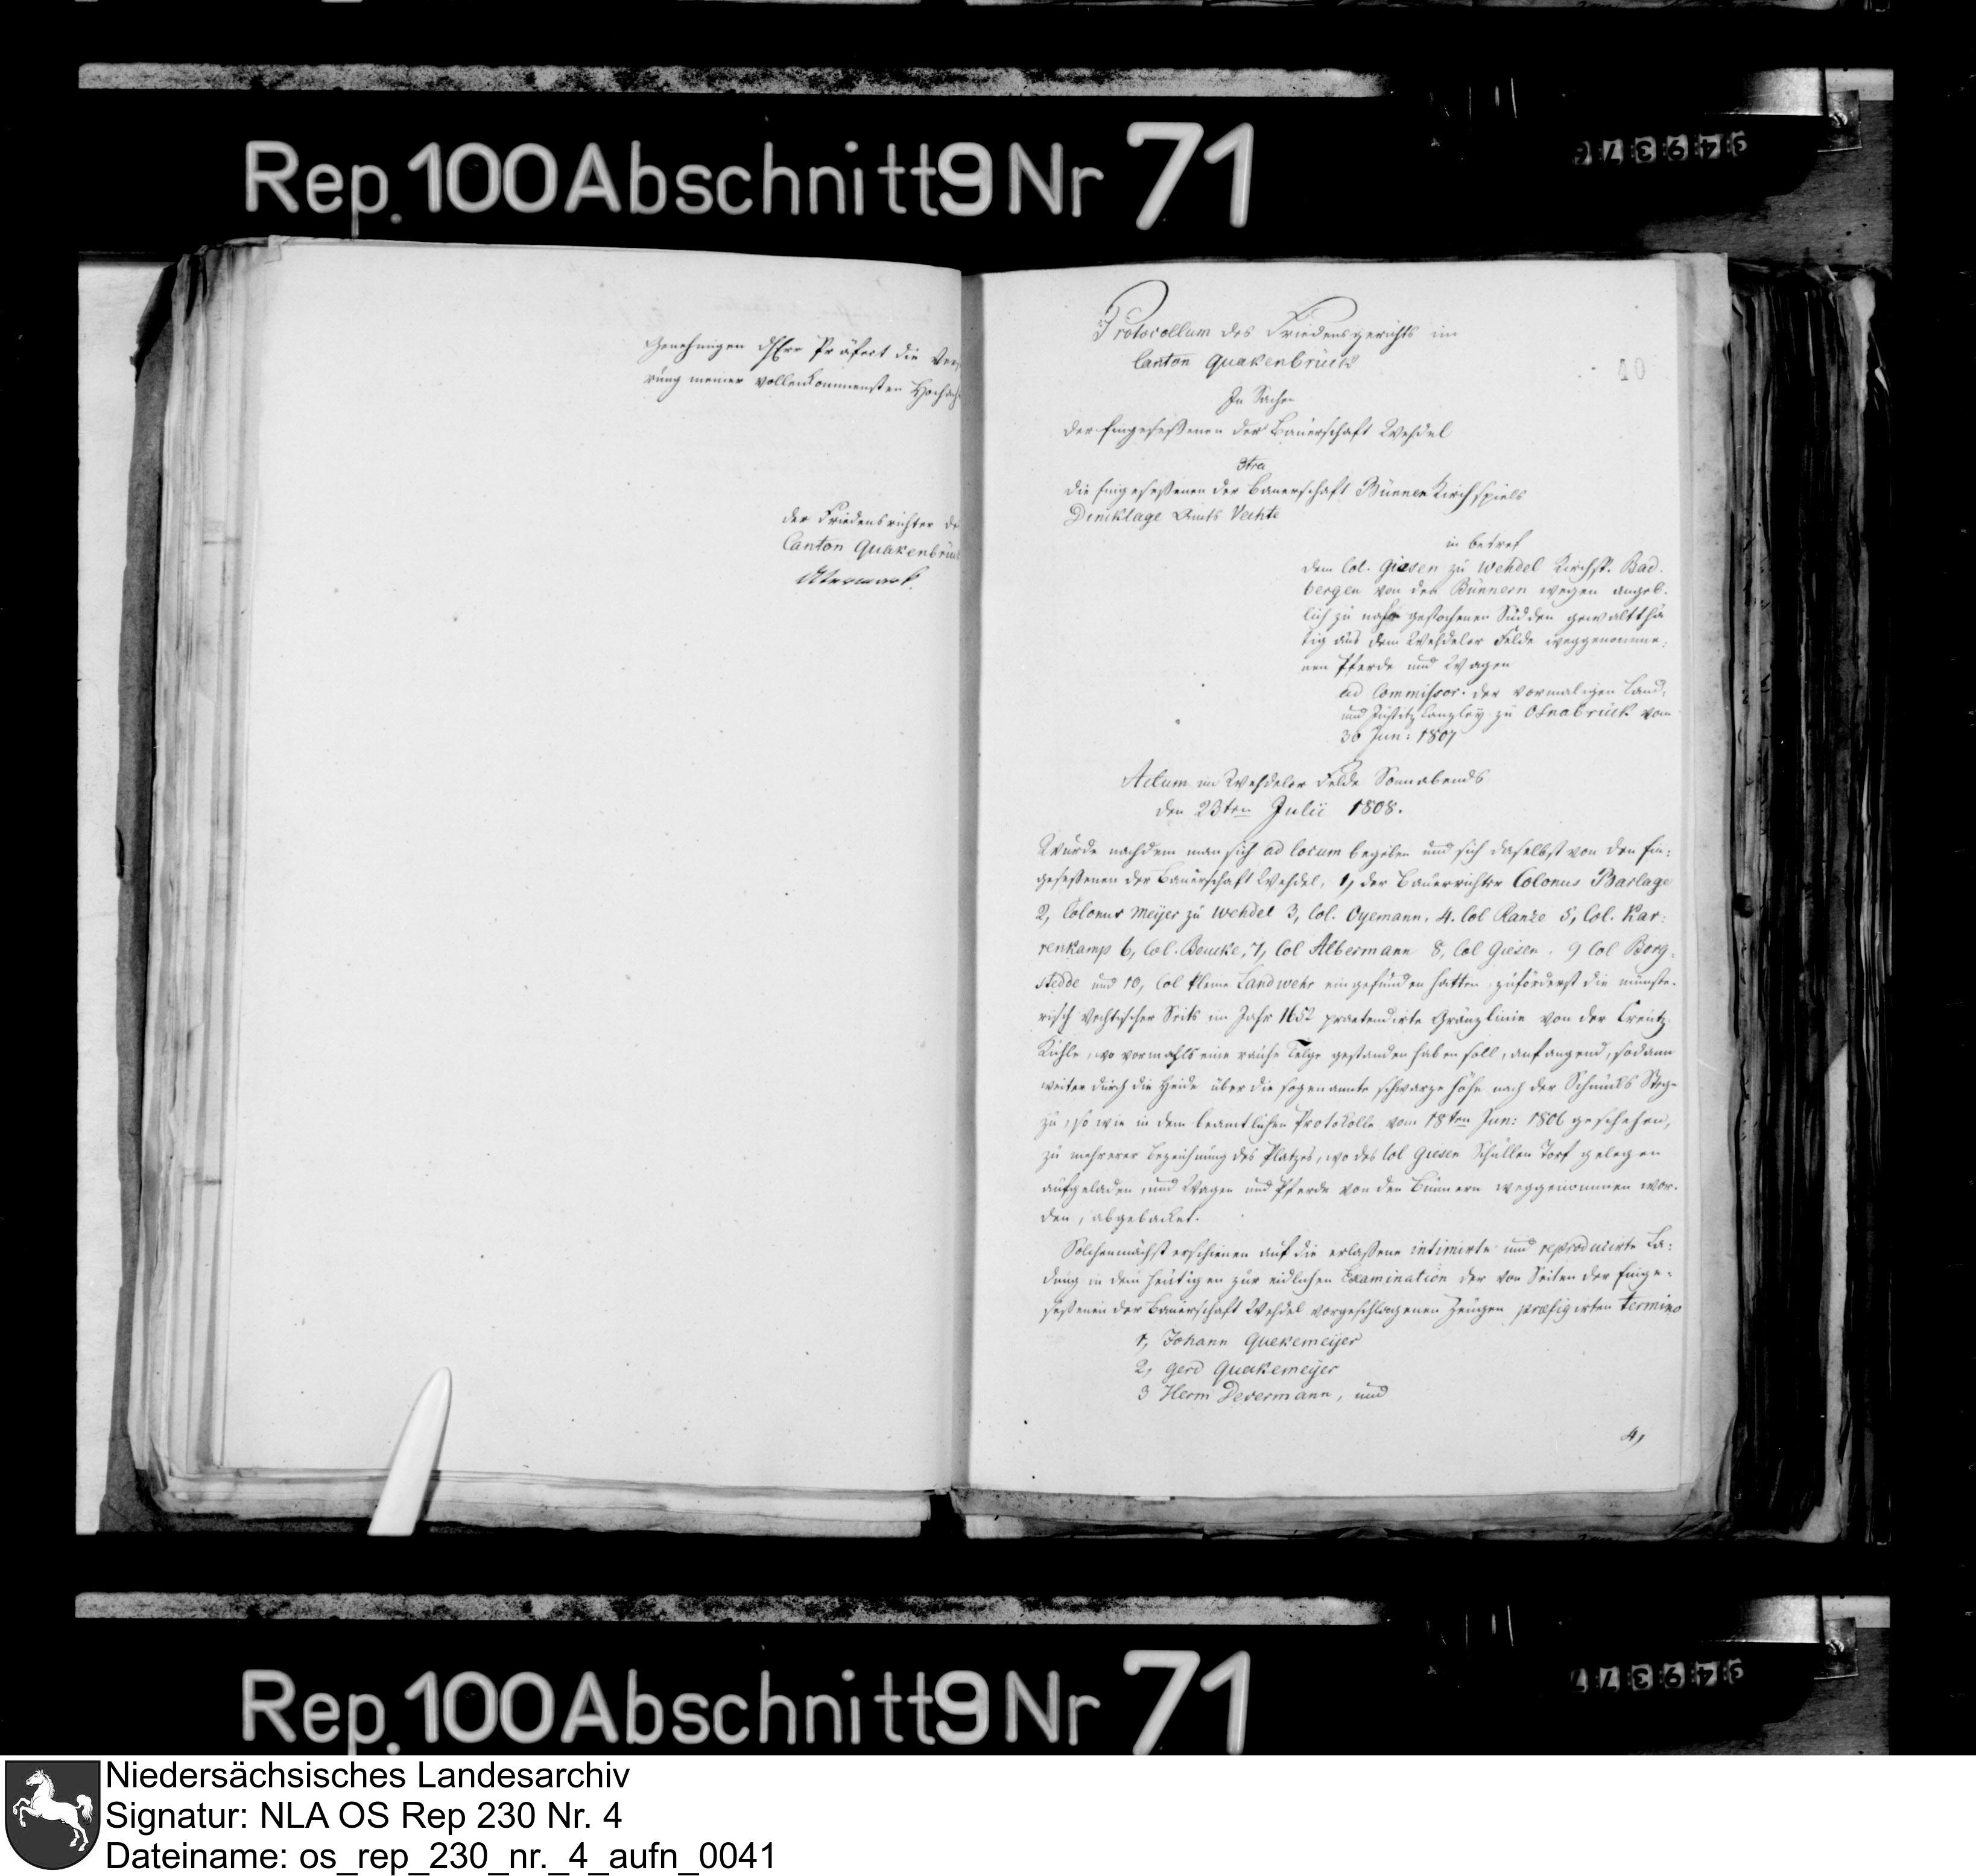 Rep. 100 Abschnitt 9 Nr 71
Genehmigen dHerr Präfect die Ver¬
rung meiner vollenkommensten Hochach
der Friedensrichter des
Canton Quakenbrück
40
Protocollum des Friedensgerichts im
Canton Quakenbrück
In Sachen
der Eingeseßenen der Bauerschaft Wehdel
3tra
die Eingeseßenen der Bauerschaft Bünnen Kirchspiels
Dincklage Amts Vechte
in betref
dem Col. Giesen zu Wehdel Kirchsp. Bad.
bergen von den Bünnern wegen angeb.
lich zu nahe gestochenen Südden gewalttthä
tig aus dem Wehdeler Felde weggenomme:
nen Pferde und Wagen
ad Commissor. der vormaligen Land:
und Justitz Canzley zu Osnabrück vom
30 Jun: 1807
Actum im Wehdeler Felde Sonnabends
den 23ten Julii 1808.
Wurde nachdem man sich ad locum begeben und sich daselbst von den Ein:
geseßenen der Bauerschaft Wehdel, 1, der Bauerrichter Colonus Barlage
2, Colonus Meyer zu Wehdel 3, Col. Oyemann, 4. Col Ranze 5, Col. Kar:
renkamp 6, Col. Beucke, 7, Col Albermann 8, Col Giesen. 9 Col Borg.
stedde und 10, Col kleine Landwehr eingefunden hatten, zuförderst die münste.
risch Vechtischer Seits im Jahr 1652 praetendirte Gränzlinie von der Creutz
Kuhle, wo vormahls eine rauhe Telge gestanden haben soll, anfangend, sodann
weiter durch die Heide über die sogenannte schwarze Höhe nach der Schmucks Stege
zu, so wie in dem beamtlichen Protokolle vom 18ten Jun: 1806 geschehen,
zu mehrerer Bezeichnung des Platzes, wo des Col Giesen Schullen Torf gelegen
aufgeladen, und Wagen und Pferde von den Bünnern weggenommen wor.
den, abgebacket.
Solchemnächst erschienen auf die erlaßene intimirte und reproducirte La:
dung in dem heutigen zur eidlichen Examination der von Seiten der Einge:
seßenen der Bauerschaft Wehdel vorgeschlagenen Zeugen praefigirten Termino
1, Johann Quekemeijer
2, Gerd Quakemeijer
3 Herm Devermann, und
4,
Rep. 100 Abschnitt 9 Nr 71
Niedersächsisches Landesarchiv
Signatur: NLA OS Rep 230 Nr. 4
Dateiname: os_rep_230_nr._4_aufn_0041